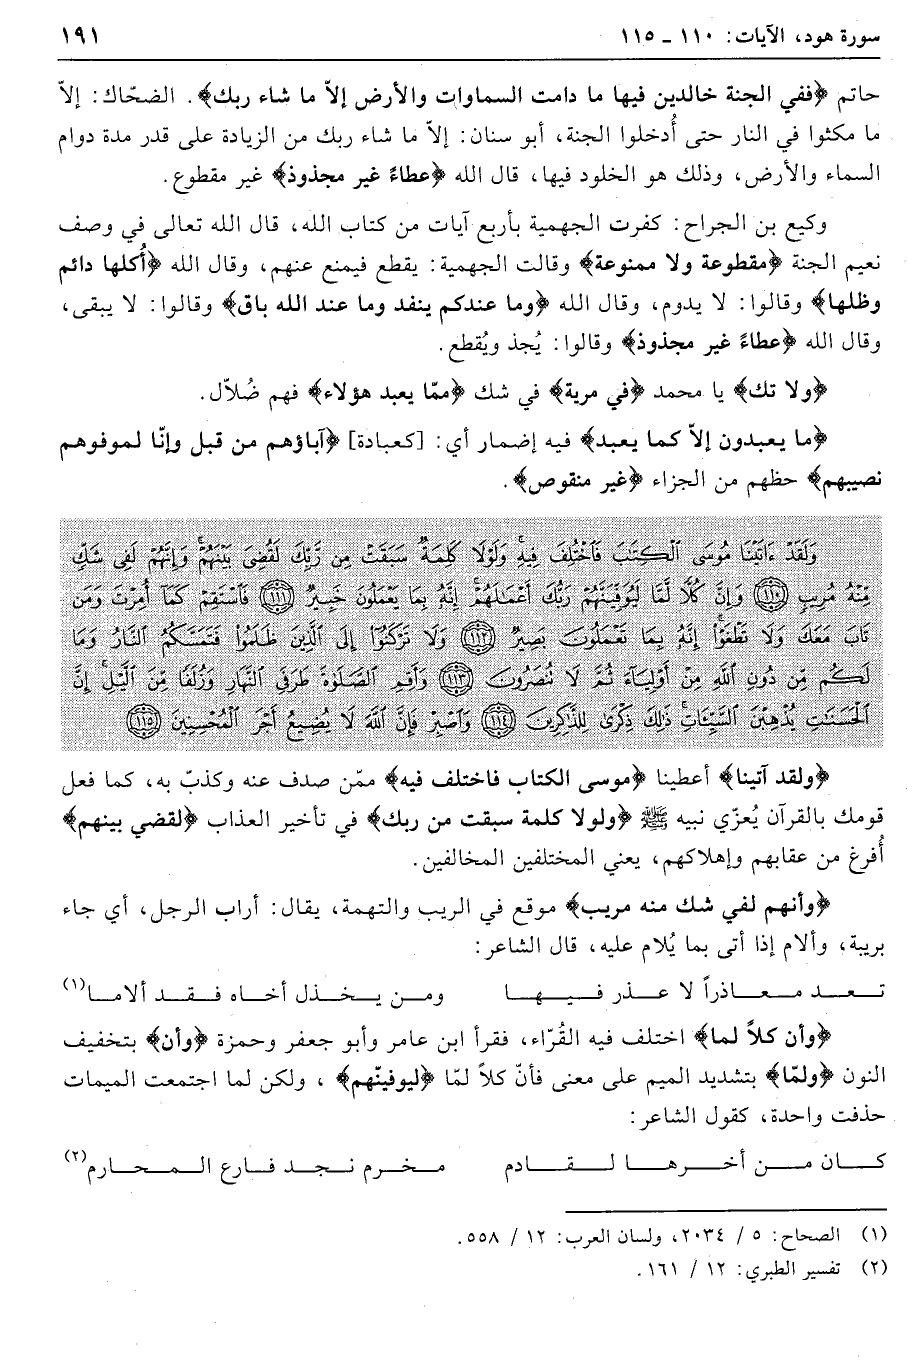 سورة هود، الآيات: ١١٠ ـ ١١٥ ١٩١
حاتم ﴿ففي الجنة خالدين فيها ما دامت السماوات والأرض إلاّ ما شاء ربك﴾. الضحّاك: إلاّ
ما مكثوا في النار حتى أُدخلوا الجنة، أبو سنان: إلاّ ما شاء ربك من الزيادة على قدر مدة دوام
السماء والأرض، وذلك هو الخلود فيها، قال الله ﴿عطاءً غير مجذوذ﴾ غير مقطوع.
وكيع بن الجراح: كفرت الجهمية بأربع آيات من كتاب الله، قال الله تعالى في وصف
نعيم الجنة ﴿مقطوعة ولا ممنوعة﴾ وقالت الجهمية: يقطع فيمنع عنهم، وقال الله ﴿أُكلها دائم
وظلها﴾ وقالوا: لا يدوم، وقال الله ﴿وما عندكم ينفد وما عند الله باق﴾ وقالوا: لا يبقى،
وقال الله ﴿عطاءً غير مجذوذ﴾ وقالوا: يُجذ ويُقطع.
﴿ولا تك﴾ يا محمد ﴿في مرية﴾ في شك ﴿ممّا يعبد هؤلاء﴾ فهم ضُلاّل.
﴿ما يعبدون إلاّ كما يعبد﴾ فيه إضمار أي: [كعبادة] ﴿آباؤهم من قبل وإنّا لموفوهم
نصيبهم﴾ حظهم من الجزاء ﴿غير منقوص﴾.
وَلَقَدْ ءَاتَيْنَا مُوسَى ٱلْكِتَٰبَ فَٱخْتُلِفَ فِيهِ ۚ وَلَوْلَا كَلِمَةٌ سَبَقَتْ مِن رَّبِّكَ لَقُضِىَ بَيْنَهُمْ ۚ وَإِنَّهُمْ لَفِى شَكٍّ
مِّنْهُ مُرِيبٍ ﴿١١٠﴾ وَإِنَّ كُلًّا لَّمَّا لَيُوَفِّيَنَّهُمْ رَبُّكَ أَعْمَٰلَهُمْ ۚ إِنَّهُۥ بِمَا يَعْمَلُونَ خَبِيرٌ ﴿١١١﴾ فَٱسْتَقِمْ كَمَآ أُمِرْتَ وَمَن
تَابَ مَعَكَ وَلَا تَطْغَوْا۟ ۚ إِنَّهُۥ بِمَا تَعْمَلُونَ بَصِيرٌ ﴿١١٢﴾ وَلَا تَرْكَنُوٓا۟ إِلَى ٱلَّذِينَ ظَلَمُوا۟ فَتَمَسَّكُمُ ٱلنَّارُ وَمَا
لَكُم مِّن دُونِ ٱللَّهِ مِنْ أَوْلِيَآءَ ثُمَّ لَا تُنصَرُونَ ﴿١١٣﴾ وَأَقِمِ ٱلصَّلَوٰةَ طَرَفَىِ ٱلنَّهَارِ وَزُلَفًا مِّنَ ٱلَّيْلِ ۚ إِنَّ
ٱلْحَسَنَٰتِ يُذْهِبْنَ ٱلسَّيِّـَٔاتِ ۚ ذَٰلِكَ ذِكْرَىٰ لِلذَّٰكِرِينَ ﴿١١٤﴾ وَٱصْبِرْ فَإِنَّ ٱللَّهَ لَا يُضِيعُ أَجْرَ ٱلْمُحْسِنِينَ ﴿١١٥﴾
﴿ولقد آتينا﴾ أعطينا ﴿موسى الكتاب فاختلف فيه﴾ ممّن صدف عنه وكذّب به، كما فعل
قومك بالقرآن يُعزّي نبيه ﷺ ﴿ولولا كلمة سبقت من ربك﴾ في تأخير العذاب ﴿لقضي بينهم﴾
أُفرغ من عقابهم وإهلاكهم، يعني المختلفين المخالفين.
﴿وأنهم لفي شك منه مريب﴾ موقع في الريب والتهمة، يقال: أراب الرجل، أي جاء
بريبة، وألام إذا أتى بما يُلام عليه، قال الشاعر:
تعد معاذراً لا عذر فيها ومن يخذل أخاه فقد ألاما(١)
﴿وأن كلاً لما﴾ اختلف فيه القُرّاء، فقرأ ابن عامر وأبو جعفر وحمزة ﴿وأن﴾ بتخفيف
النون ﴿ولمّا﴾ بتشديد الميم على معنى فأنّ كلاً لمّا ﴿ليوفينّهم﴾، ولكن لما اجتمعت الميمات
حذفت واحدة، كقول الشاعر:
كان من أخرها لقادم مخرم نجد فارع المحارم(٢)
(١) الصحاح: ٥ / ٢٠٣٤، ولسان العرب: ١٢ / ٥٥٨.
(٢) تفسير الطبري: ١٢ / ١٦١.